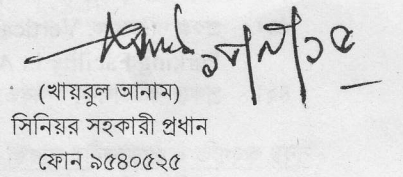 (খায়রুল আনাম)
সিনিয়র সহকারী প্রধান
ফোন ৯৫৪০৫২৫